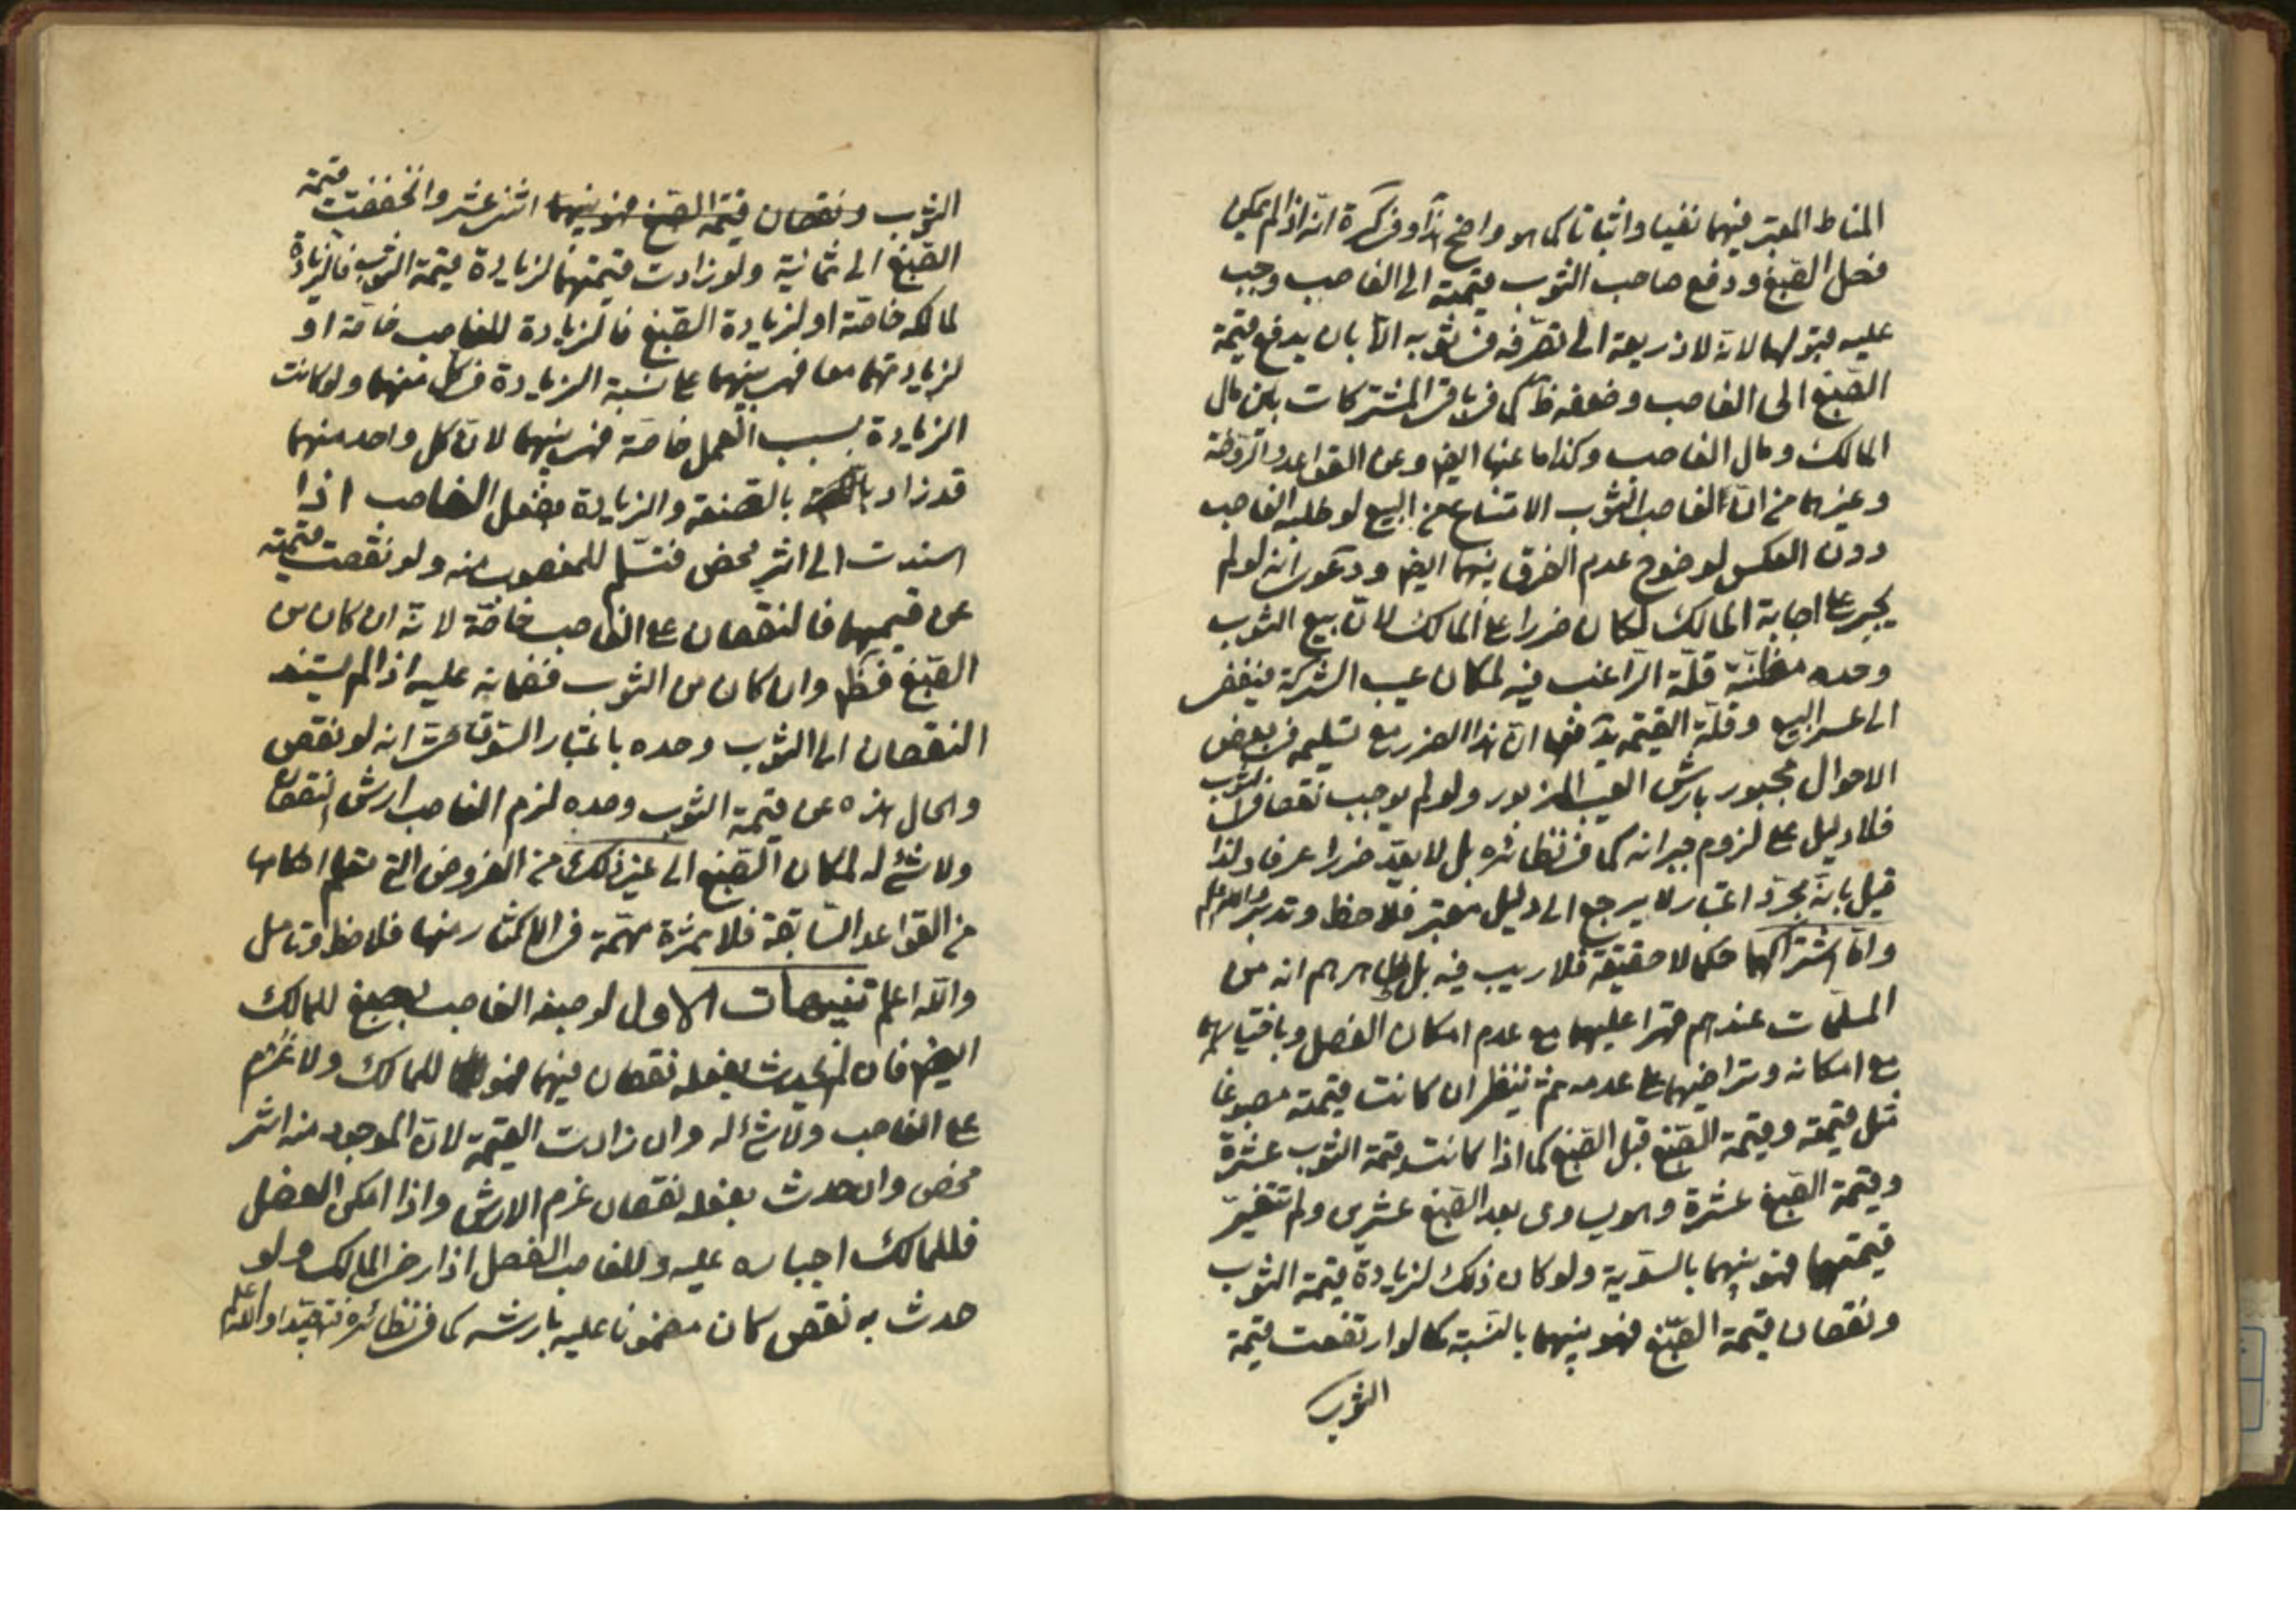 المناط المعتبر فيهما نفيا واثباتا كما هو واضح هذا وفي كرة انه اذا لم يمكن
فصل الصّبغ ودفع صاحب الثوب قيمته الى الغاصب وجب
عليه قبولها لانه لا ذريعة الى تصرّفه في ثوبه الّا بان يدفع قيمة
الصّبغ الى الغاصب وضعفه ظ كما في باقي المشتركات بين مال
المالك ومال الغاصب وكذا ما عنها ايضا وعن القواعد والرّوضة
وغيرهما من انّ لغاصب الثوب الامتناع من البيع لو طلبه الغاصب
دون العكس لوضوح عدم الفرق بينهما ايضا ودعوى انه لو لم
يجبر على اجابة المالك لكان ضررا على المالك لانّ بيع الثوب
وحده مظنّة قلّة الرّاغب فيه لمكان عيب الشركة فيفضي
الى عسر البيع وقلّة القيمة يدفعها انّ هذا الضرر مع تسليمه في بعض
الاحوال مجبور بارش العيب المزبور ولو لم يوجب نقصا في الثوب
فلا دليل على لزوم جبرانه كما في نظائره بل لا يعدّ ضررا عرفا ولذا
قيل بانّه مجرّد اعتبار لا يرجع الى دليل معتبر فلاحظ وتدبر والله اعلم
وامّا اشتراكهما حكما لا حقيقة فلا ريب فيه بل ظاهرهم انه من
المسلّمات عندهم قهرا عليهما مع عدم امكان الفصل وباختيارهما
مع امكانه وتراضيهما على عدمه ثم ينظر ان كانت قيمته مصبوغا
مثل قيمته وقيمة الصّبغ قبل الصّبغ كما اذا كانت قيمة الثوب عشرة
وقيمة الصّبغ عشرة وهو يساوى بعد الصّبغ عشرين ولم تتغيّر
قيمتهما فهو بينهما بالسّوية ولو كان ذلك لزيادة قيمة الثوب
ونقصان قيمة الصّبغ فهو بينهما بالنّسبة كما لو ارتفعت قيمة
الثوب
الثوب ونقصان قيمة الصّبغ فهو بينهما اثنى عشر وانخفضت قيمة
الصّبغ الى ثمانية ولو زادت قيمتهما لزيادة قيمة الثوب فالزيادة
لمالكه خاصّة او لزيادة الصّبغ فالزيادة للغاصب خاصّة او
لزيادتهما معا فهي بينهما على نسبة الزيادة في كل منهما ولو كانت
الزيادة بسبب العمل خاصّة فهي بينهما لانّ كل واحد منهما
قد زاد بالصّنعة والزيادة بفعل الغاصب اذا
اسندت الى اثر محض فتسلّم للمغصوب منه ولو نقصت قيمته
عن قيمتهما فالنقصان على الغاصب خاصّة لانّه ان كان من
الصّبغ فظ وان كان من الثوب فضمانه عليه اذا لم يستند
النقصان الى الثوب وحده باعتبار السّوق حتى انه لو نقص
والحال هذه عن قيمة الثوب وحده لزم الغاصب ارش النقصان
ولا شئ له لمكان الصّبغ الى غير ذلك من الفروض التي تعلم احكامها
من القواعد السّابقة فلا ثمرة مهمّة في الاكثار منها فلاحظ وتامل
والله اعلم تنبيهات الاول لو صبغه الغاصب بصبغ للمالك
ايضا فان لم يحدث بفعله نقصان فيهما فهو للمالك ولا غرم
على الغاصب ولا شئ له وان زادت القيمة لانّ الموجود منه اثر
محض وان حدث بفعله نقصان غرم الارش واذا امكن الفصل
فللمالك اجباره عليه وللغاصب الفصل اذا رضى المالك ولو
حدث به نقص كان مضمونا عليه بارشه كما في نظائره والله اعلم